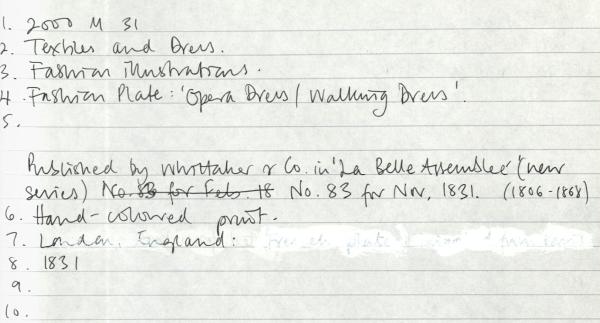 1. 2000 M 31
2. Textiles and Dress.
3. Fashion illustrations.
4. Fashion Plate: 'Opera Dress / Walking Dress'.
5.
Published by Whittaker & Co. in 'La Belle Assemblée' (new
series) No. 83 for Feb. 18 No. 83 for Nov, 1831. (1806-1868)
6. Hand-coloured print.
7. London, England:
8. 1831
9.
10.